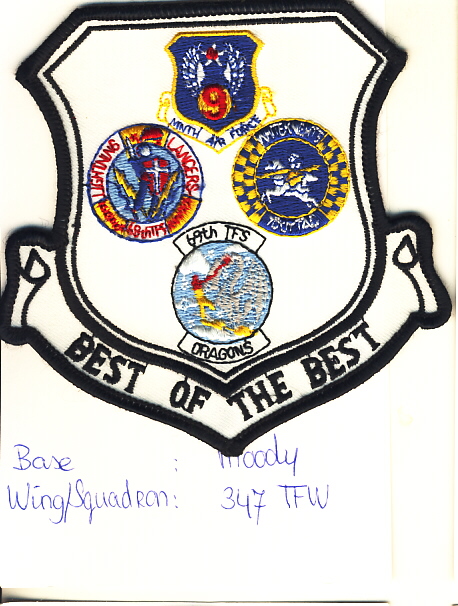 9
NINTH AIR FORCE
LIGHTNING LANCERS
68th TFS
69th TFS
DRAGONS
BEST OF THE BEST
Base : Moody
Wing/Squadron: 347 TFW